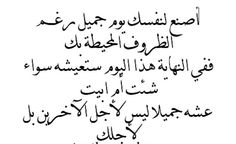 أصنع لنفسك يوم جميل رغم
الظروف المحيطة بك
ففي النهاية هذا اليوم ستعيشه سواء
شئت أم ابيت
عشه جميلا ليس لأجل الآخرين بل
لأجلك